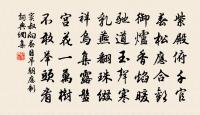 紫殿俯千官
春松應合歡
御爐香焰暖
馳道玉聲寒
乳燕翻珠綴
祥烏集露盤
宮花一萬樹
不敢舉頭看
竇叔向春日早朝應制
詞典網集